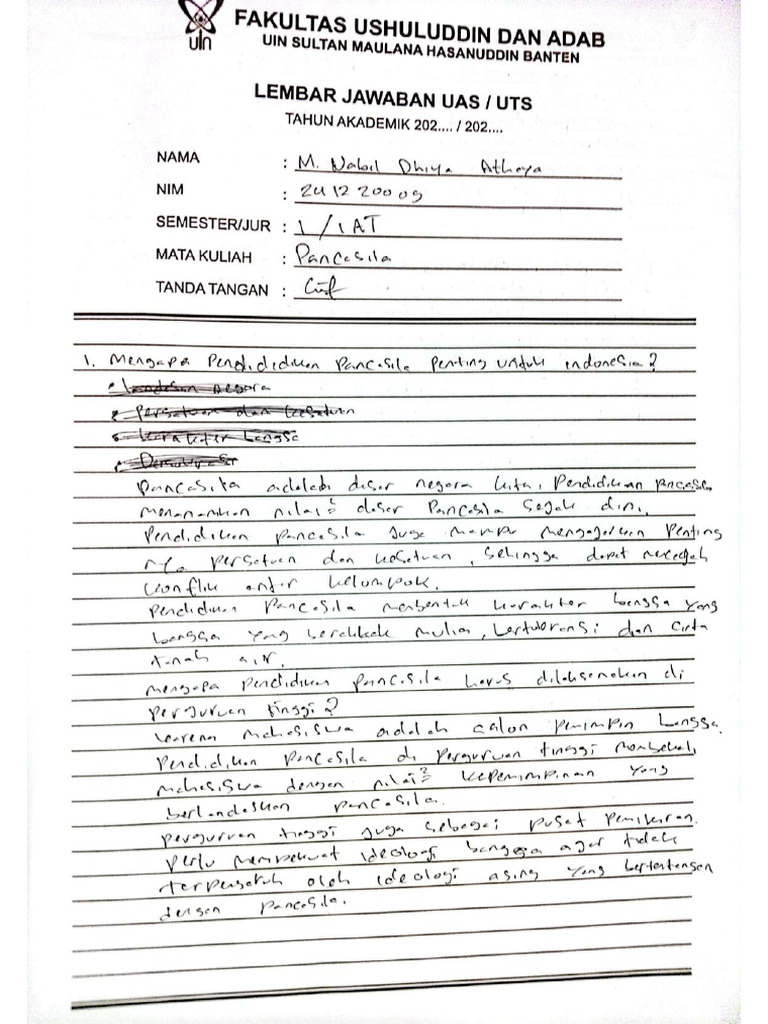 UIN
FAKULTAS USHULUDDIN DAN ADAB
UIN SULTAN MAULANA HASANUDDIN BANTEN
LEMBAR JAWABAN UAS / UTS
TAHUN AKADEMIK 202.... / 202....
NAMA : M. Nabil Dhiya Athaya
NIM : 241220009
SEMESTER/JUR : 1 / IAT
MATA KULIAH : Pancasila
TANDA TANGAN :
1. Mengapa Pendididikan Pancasila Penting untuk indonesia?
• Landasan negara
• Persatuan dan kesatuan
• Karakter bangsa
• Demokrasi
Pancasila adalah dasar negara kita, Pendidikan Pancasila
menanamkan nilai² dasar Pancasila sejak dini.
Pendidikan pancasila juga mampu mengajarkan Penting
nya persatuan dan kesatuan, sehingga dapat mencegah
konflik antar kelompok.
Pendidikan Pancasila membentuk karakter bangsa yang
bangsa yang berakhlak mulia, bertoleransi dan cinta
tanah air.
mengapa Pendidikan pancasila harus dilaksanakan di
perguruan tinggi?
karena mahasiswa adalah calon pemimpin bangsa.
Pendidikan Pancasila di Perguruan tinggi membekali
mahasiswa dengan nilai² kepemimpinan yang
berlandaskan pancasila.
perguruan tinggi juga sebagai pusat pemikiran.
Perlu memperkuat ideologi bangsa agar tidak
terpengaruh oleh ideologi asing yang bertentangan
dengan Pancasila.